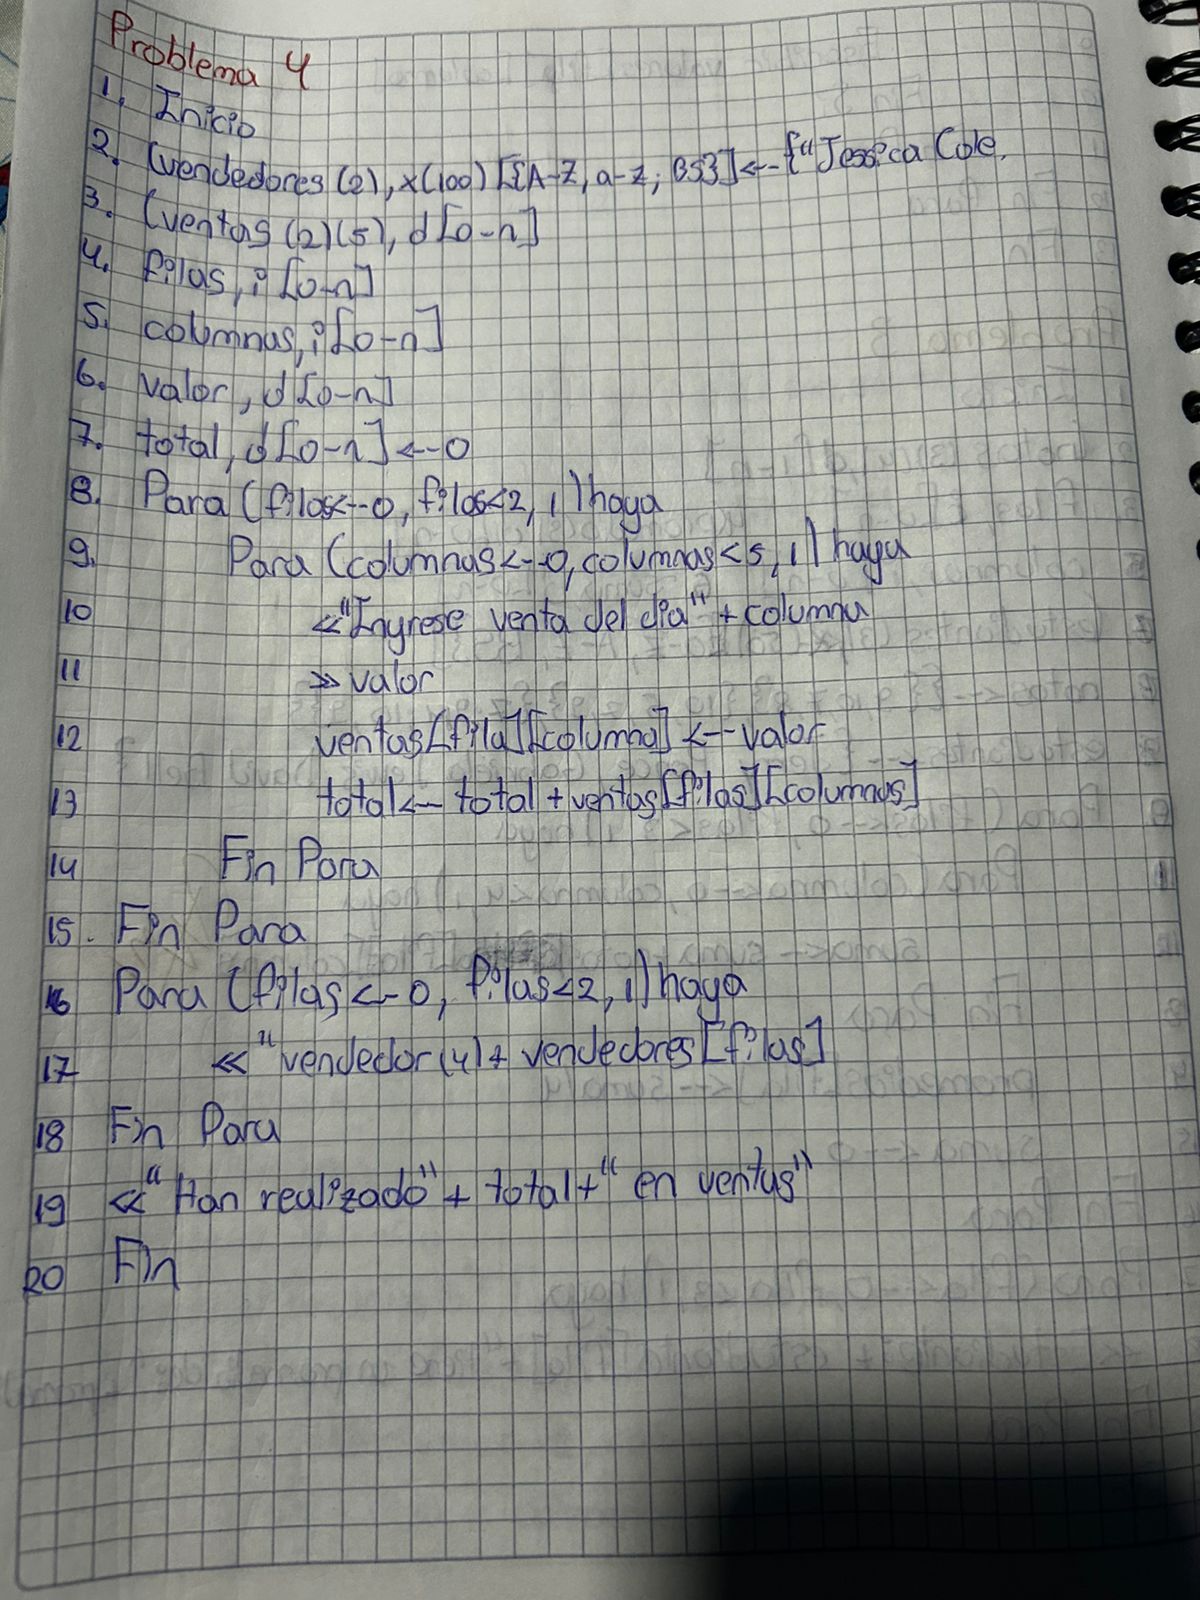 Problema 4
1. Inicio
2. (vendedores (2), x(100) [{A-Z, a-z, BS}] <-- {"Jessica Cole,
3. (ventas (2)(5), d[0-n]
4. filas, i [0-n]
5. columnas, i [0-n]
6. valor, d [0-n]
7. total, d [0-n] <-- 0
8. Para (filas<--0, filas<2, 1) haga
9. Para (columnas<--0, columnas<5, 1) haga
10 <<"Ingrese venta del dia" + columna
11 >> valor
12 ventas[fila][columna] <-- valor
13 total<-- total + ventas[filas][columnas]
14 Fin Para
15. Fin Para
16 Para (filas<--0, filas<2, 1) haga
17 << "vendedor(4)+ vendedores[filas]
18 Fin Para
19 <<"Han realizado" + total+" en ventas"
20 Fin